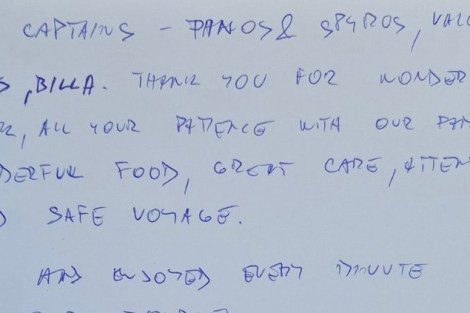 CAPTAINS - PANOS & SPYROS, VALE
S, BILLA. THANK YOU FOR WONDER
ALL YOUR PATIENCE WITH OUR
DERFUL FOOD, GREAT CARE, ATTEN
SAFE VOYAGE.
AND ENJOYED EVERY MINUTE